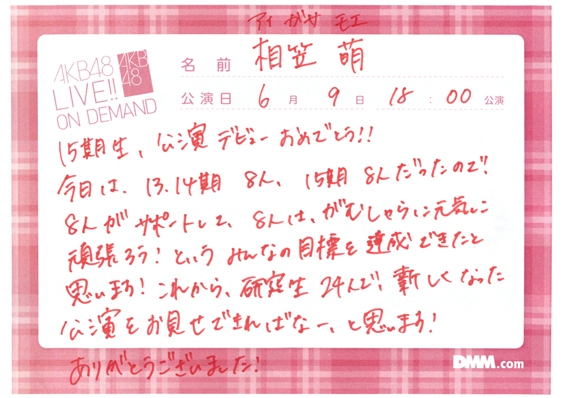 アイ ガサ モエ
AKB48
LIVE!!
ON DEMAND
AKB
48
名前 相笠 萌
公演日 6月 9日 18:00 公演
15期生、公演デビューおめでとう!!
今日は、13.14期 8人、15期 8人だったので!
8人がサポートして、8人は、がむしゃらに元気に
頑張ろう!という みんなの目標を達成できたと
思います!これから、研究生 24人で!新しくなった
公演をお見せできればなー、と思います!
ありがとうございました!
DMM.com